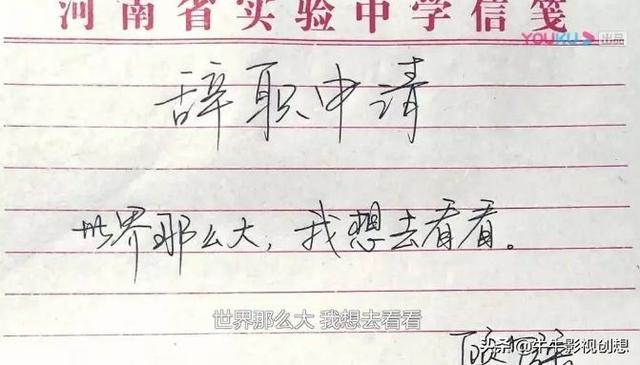 河南省实验中学信笺
YOUKU 出品
辞职申请
世界那么大，我想去看看。
世界那么大 我想去看看
头条@牛牛影视创想